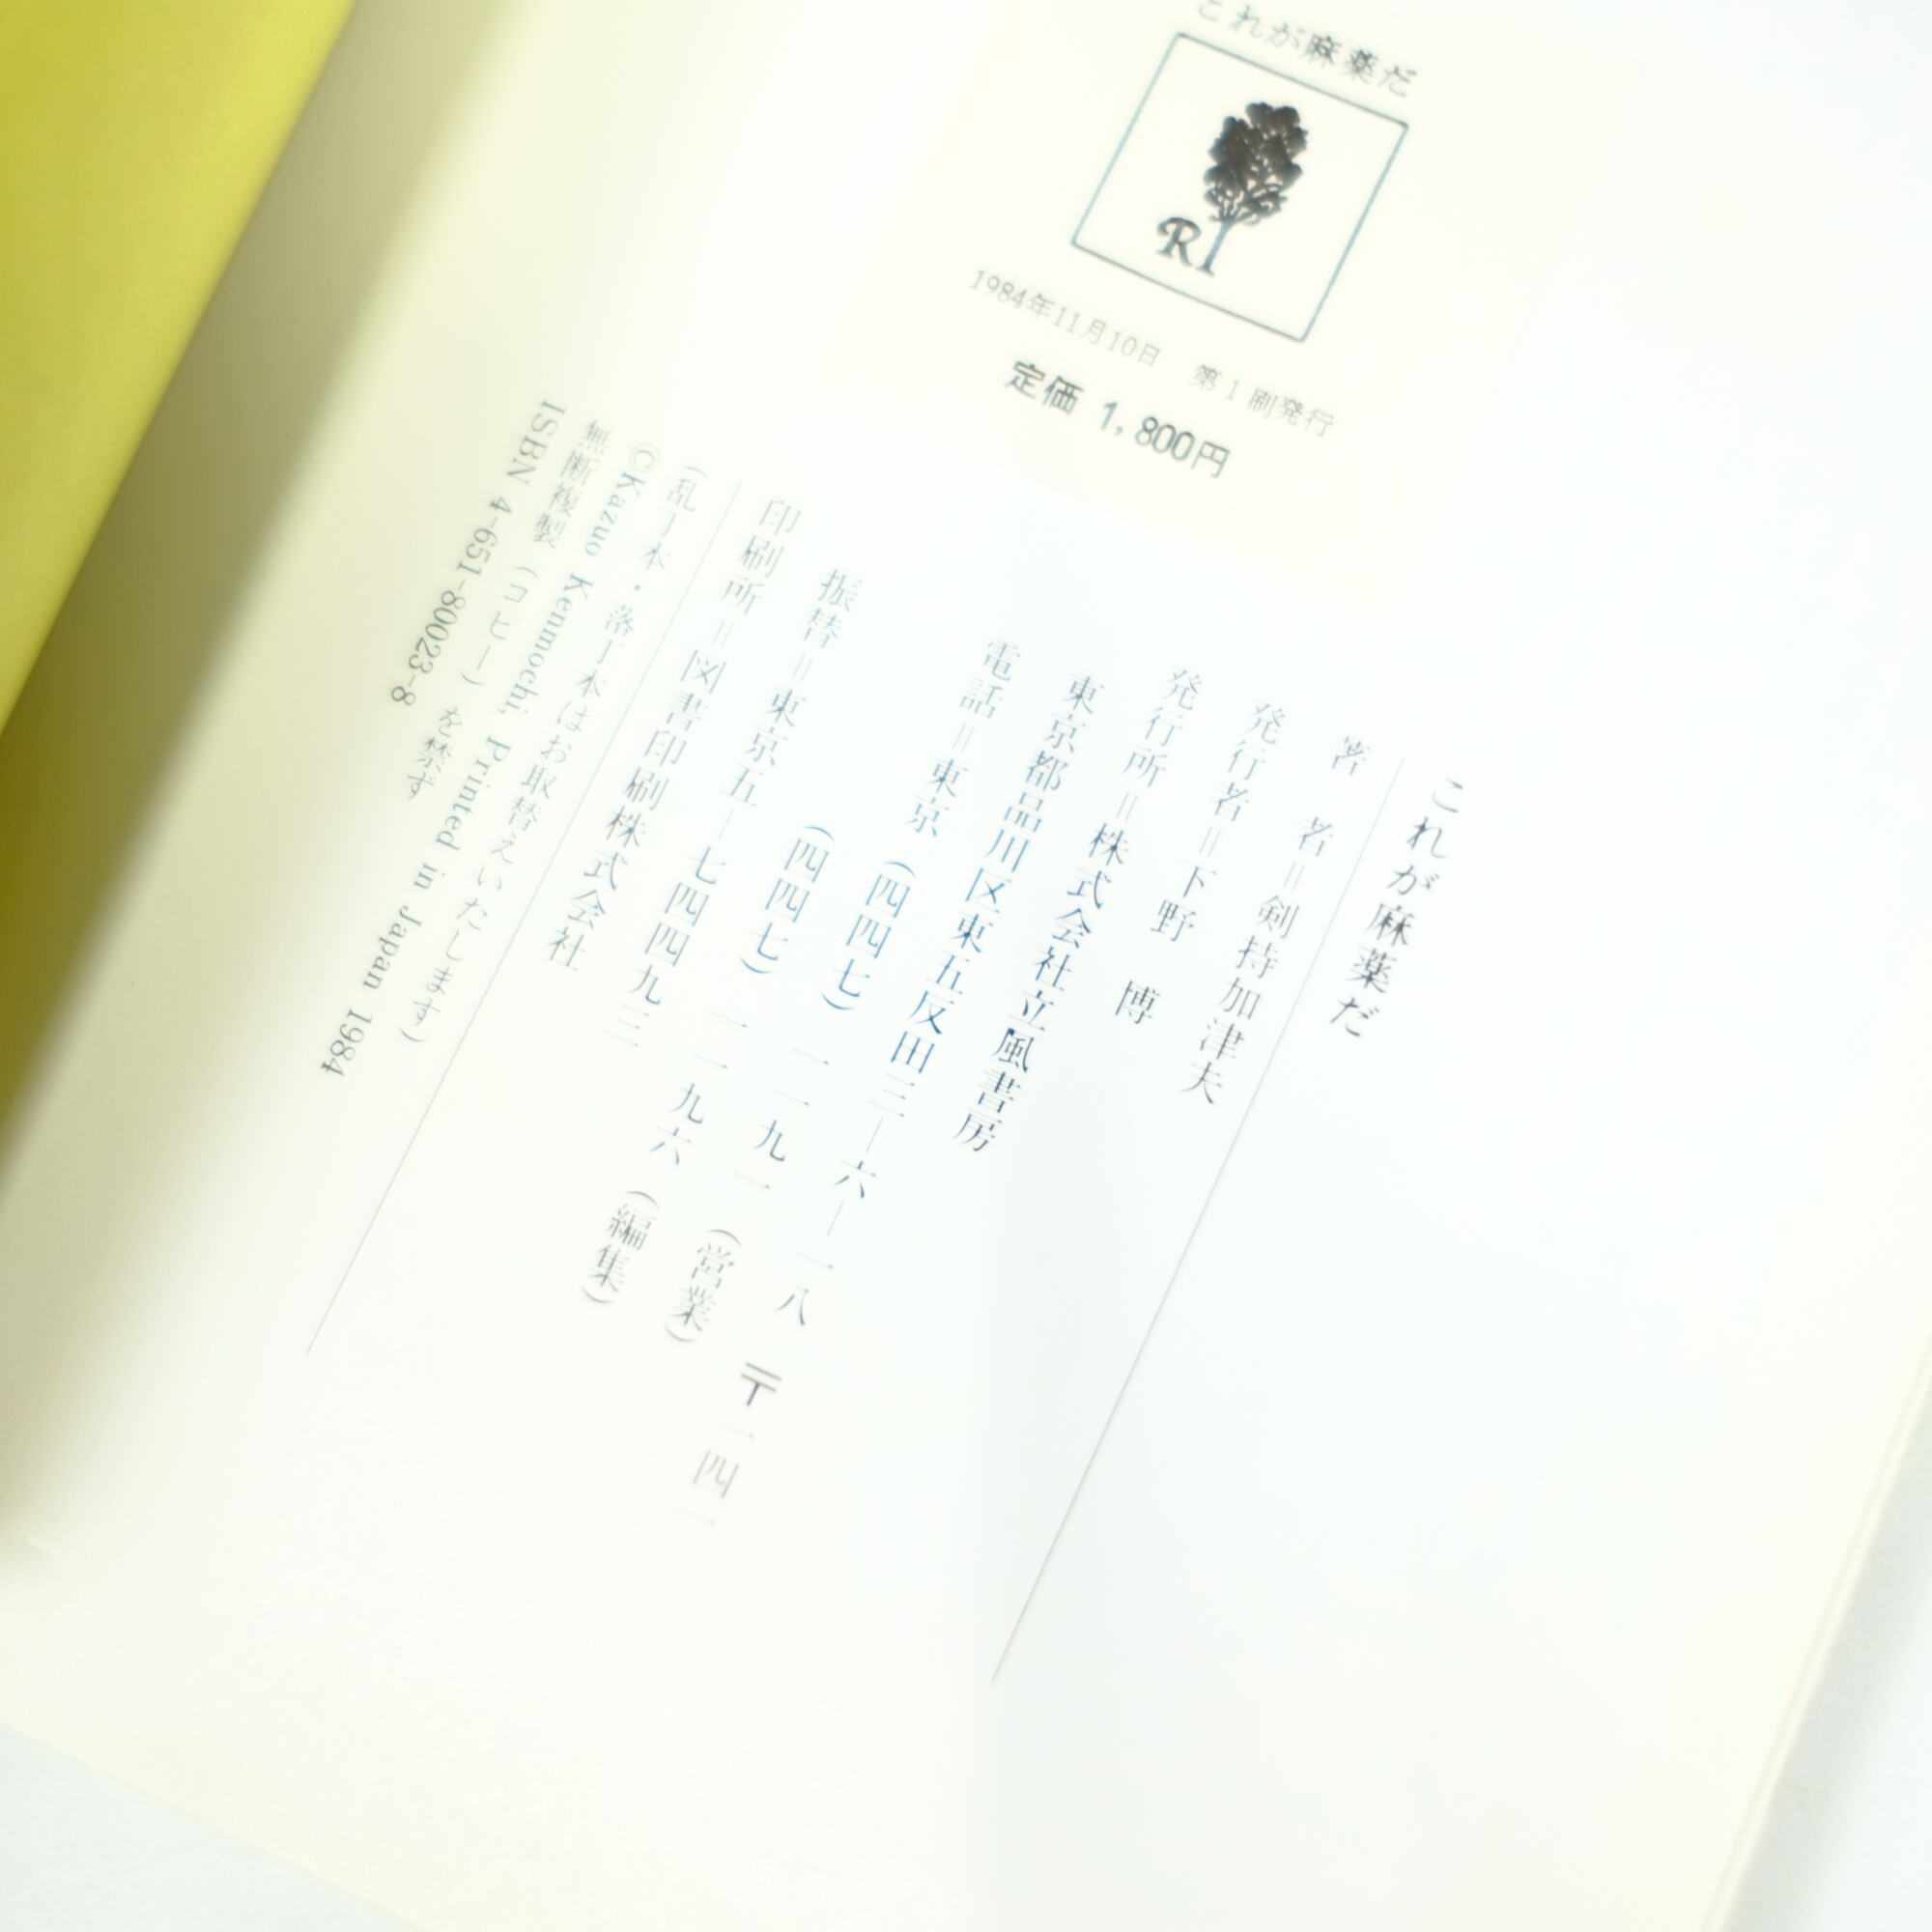 これが麻薬だ
RI
1984年11月10日　第1刷発行
定価 1,800円
これが麻薬だ
著　者＝剣持加津夫
発行者＝下野　博
発行所＝株式会社立風書房
東京都品川区東五反田三－六－一八　〒一四一
電話＝東京（四四七）一一九一（営業）
（四四七）一一九六（編集）
振替＝東京五－七四四九三
印刷所＝図書印刷株式会社
（乱丁本・落丁本はお取替えいたします）
©Kazuo Kenmochi, Printed in Japan 1984
無断複製（コピー）を禁ず
ISBN 4-651-80023-8